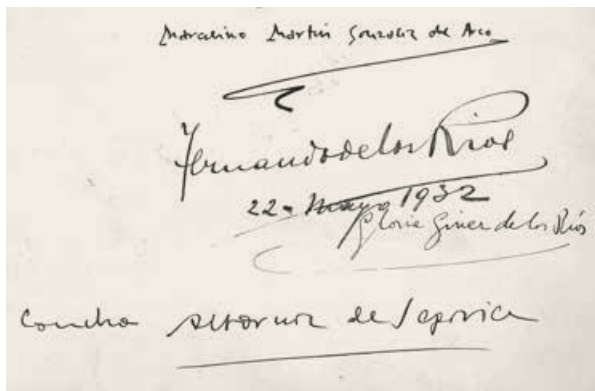 Marcelino Martín González de Arco
Fernando de los Ríos
22 - Mayo 1932
Gloria Giner de los Ríos
Concha de Segovia